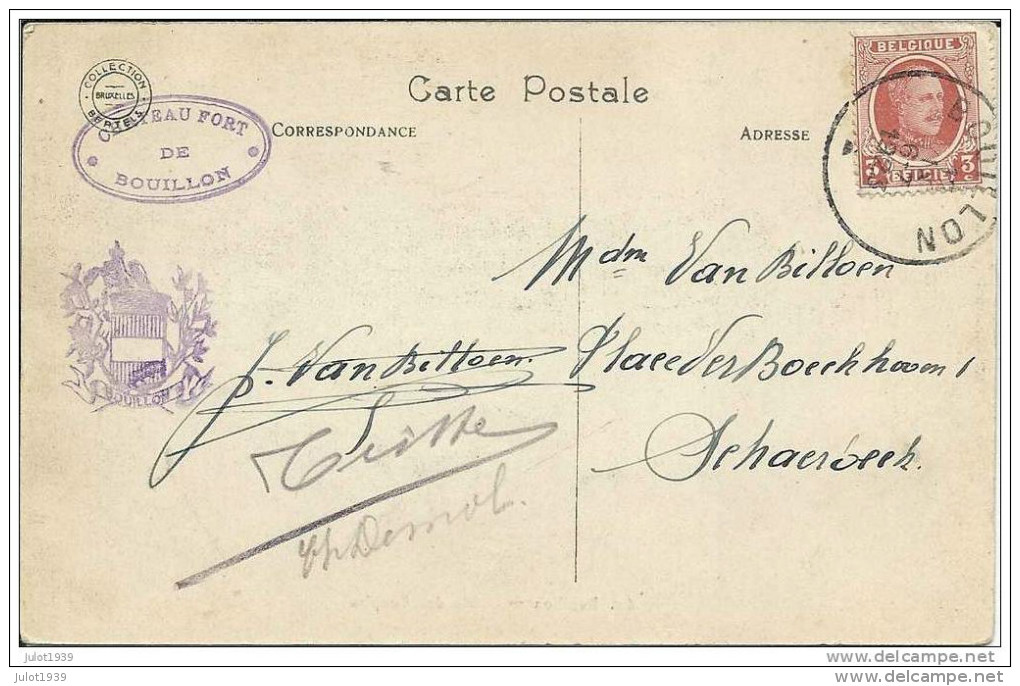 COLLECTION
BRUXELLES
BERTELS
Carte Postale
CHATEAU FORT
DE
BOUILLON
CORRESPONDANCE
ADRESSE
BELGIQUE
3 BELGIE 3
BOUILLON
Mdm Van Billoen
J. Van Billoen. Place Der Boeckhoven 1
Schaerbeek.
BOUILLON
julot1939
julot1939
www.delcampe.net
www.delcampe.net